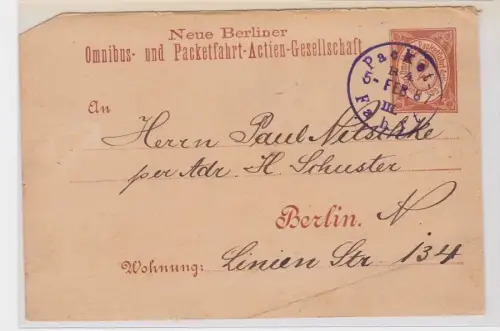 Neue Berliner
Omnibus- und Packetfahrt-Actien-Gesellschaft
Packet
5- FEB 87
III
Fahrt
An
Herrn Paul Nitschke
per Adr. H. Schuster
Berlin. N
Wohnung: Linien Str 134